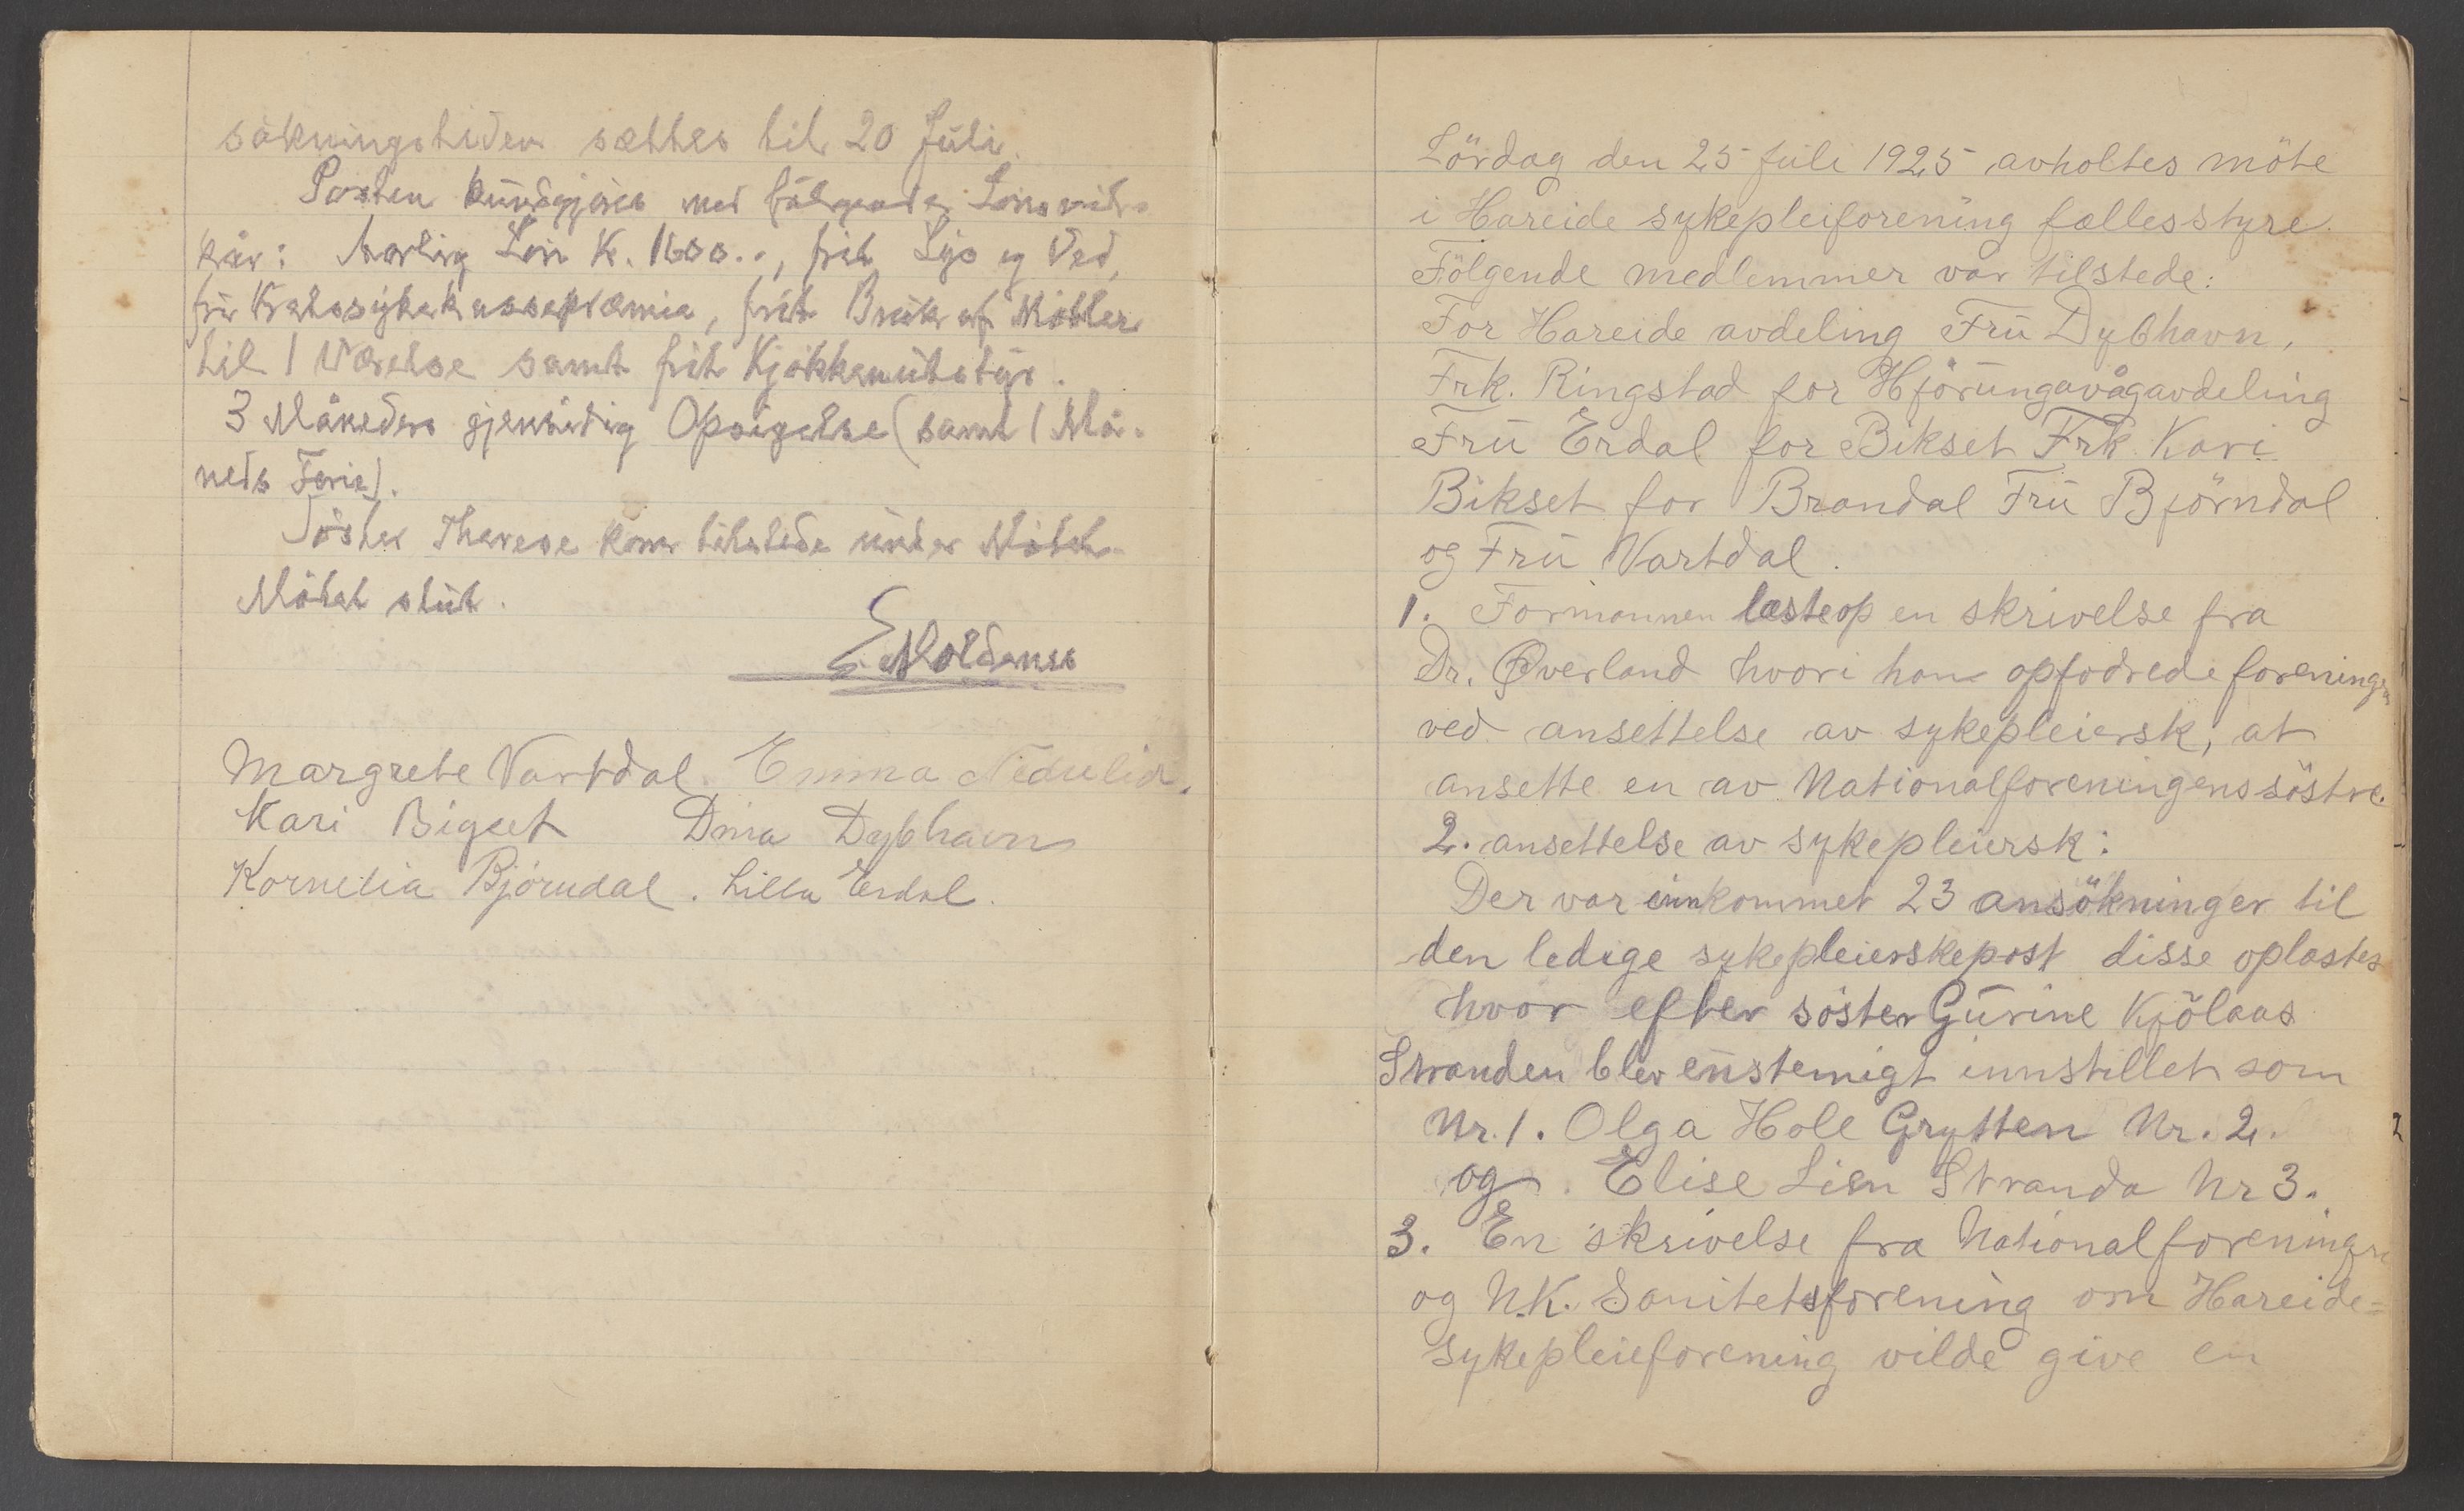 søkningstiden sættes til 20 Juli.
Posten kundgjøres med følgende Lønsvil-
kår: Aarlig Løn K. 1600.., frit Lys og Ved,
fri Kretssykekassepræmie, frit Bruk af Møbler
til 1 Værelse samt frit Kjøkkenutstyr.
3 Måneders gjensidig Opsigelse (samt 1 Må-
neds Ferie).
Søster Therese kom tilstede under Møtet.
Møtet slut.
E. Moldenes
Margrete Vartdal. Emma Nedrelid.
Kari Bigset Dina Dybhavn
Kornelia Bjørndal. Lilla Erdal.
Lördag den 25 Juli 1925 avholtes möte
i Hareide sykepleiforening fællesstyre.
Fölgende medlemmer var tilstede:
For Hareide avdeling Fru Dybhavn,
Frk. Ringstad for Hjörungavågavdeling
Fru Erdal for Bikset Frk. Kari
Bikset for Brandal Fru Björndal
og Fru Vartdal.
1. Formannen læste op en skrivelse fra
Dr. Øverland hvori han opfodrede foreningen
ved ansettelse av sykepleiersk, at
ansette en av Nationalforeningens söstre.
2. ansettelse av sykepleiersk:
Der var innkommet 23 ansökninger til
den ledige sykepleierskepost disse oplastes
hvor efter söster Gurine Kjölaas
Stranden blev enstemigt innstillet som
Nr. 1. Olga Hole Grytten Nr. 2.
og. Elise Lien Stranda Nr 3.
3. En skrivelse fra Nationalforeningen
og N.K. Sanitetsforening om Hareide=
sykepleieforening vilde give en